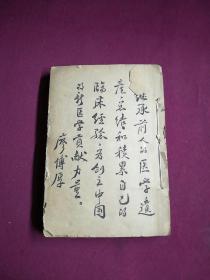 继承前人的医学遗
产，总结和积累自己的
临床经验，为创立中国
的新医学贡献力量。
廖博厚